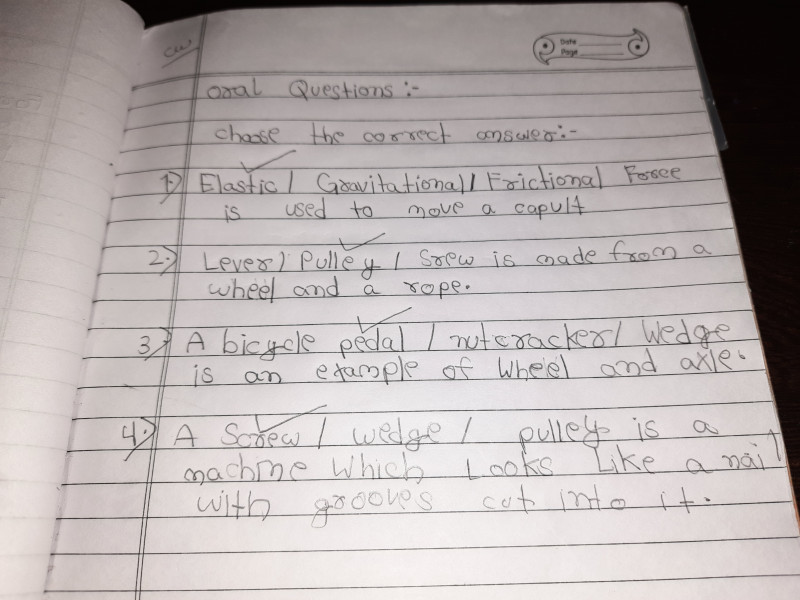 cw
Date
Page
Oral Questions:-
choose the correct answer:-
1) Elastic / Gravitational / Frictional Force
is used to move a capult
2.) Lever / Pulley / Srew is made from a
wheel and a rope.
3) A bicycle pedal / nutcracker / Wedge
is an example of wheel and axle.
4.) A Screw / wedge / pulley is a
machine which Looks Like a nail
with grooves cut into it.